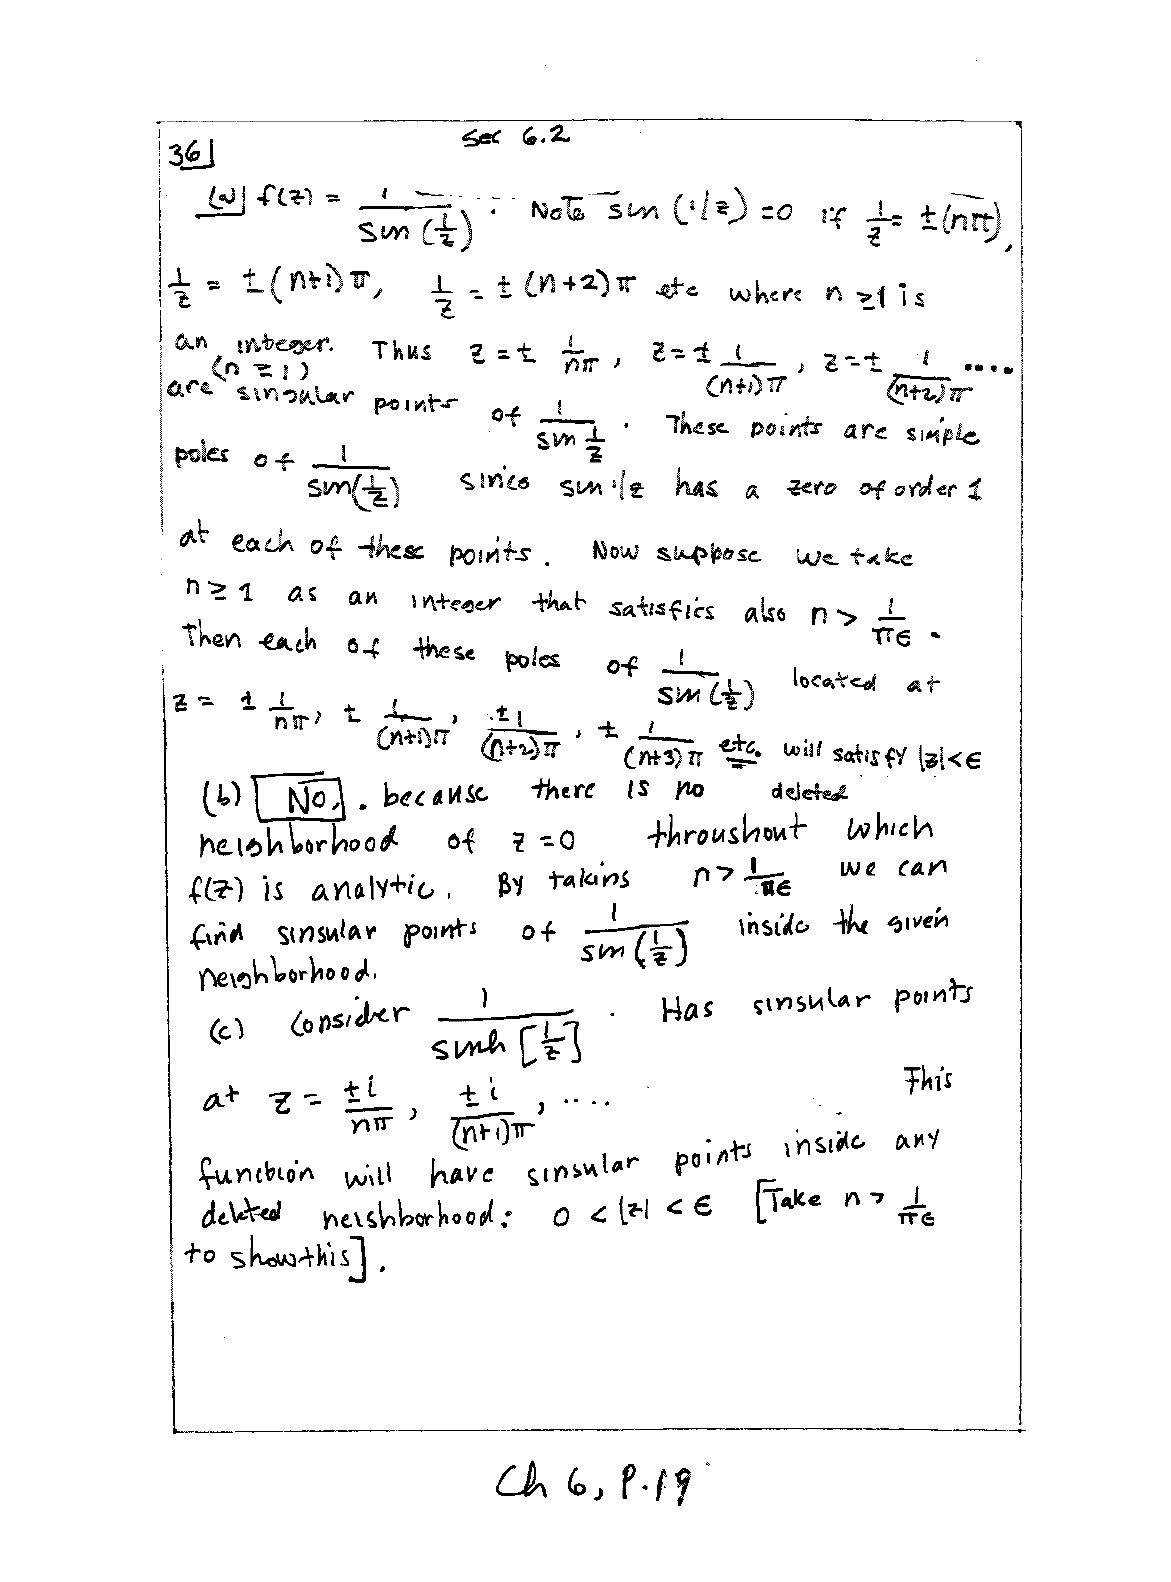 Sec 6.2
36
(a) f(z) = 1/sin(1/z) . Note sin (1/z) = 0 if 1/z = ±(nπ),
1/z = ±(n+1)π, 1/z = ±(n+2)π etc where n ≥1 is
an integer. Thus z = ± 1/nπ , z = ± 1/(n+1)π , z = ± 1/(n+2)π ....
(n ≥ 1)
are singular points of 1/sin 1/z . These points are simple
poles of 1/sin(1/z) since sin 1/z has a zero of order 1
at each of these points. Now suppose we take
n ≥ 1 as an integer that satisfies also n > 1/πϵ .
Then each of these poles of 1/sin(1/z) located at
z = ± 1/nπ, ± 1/(n+1)π, ±1/(n+2)π , ± 1/(n+3)π etc. will satisfy |z|<ϵ
(b) No, . because there is no deleted
neighborhood of z=0 throughout which
f(z) is analytic. By taking n > 1/πϵ we can
find singular points of 1/sin(1/z) inside the given
neighborhood.
(c) Consider 1/sinh[1/z] . Has singular points
at z = ±i/nπ , ±i/(n+1)π , .... This
function will have singular points inside any
deleted neighborhood: 0 < |z| < ϵ [Take n > 1/πϵ
to show this].
Ch 6, P.19